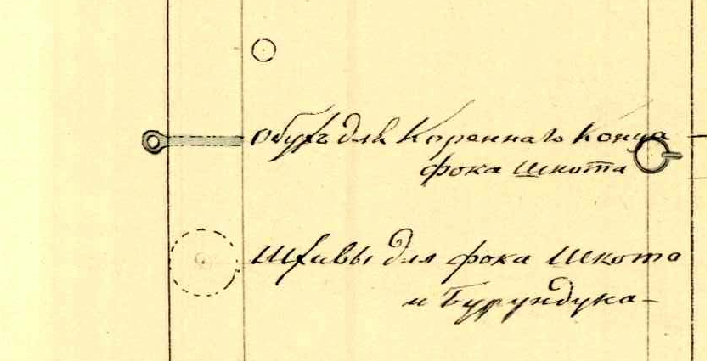 Обухъ для Кореннаго Конца
фока Шкота
Шкивы для фока Шкота
и Бурундука